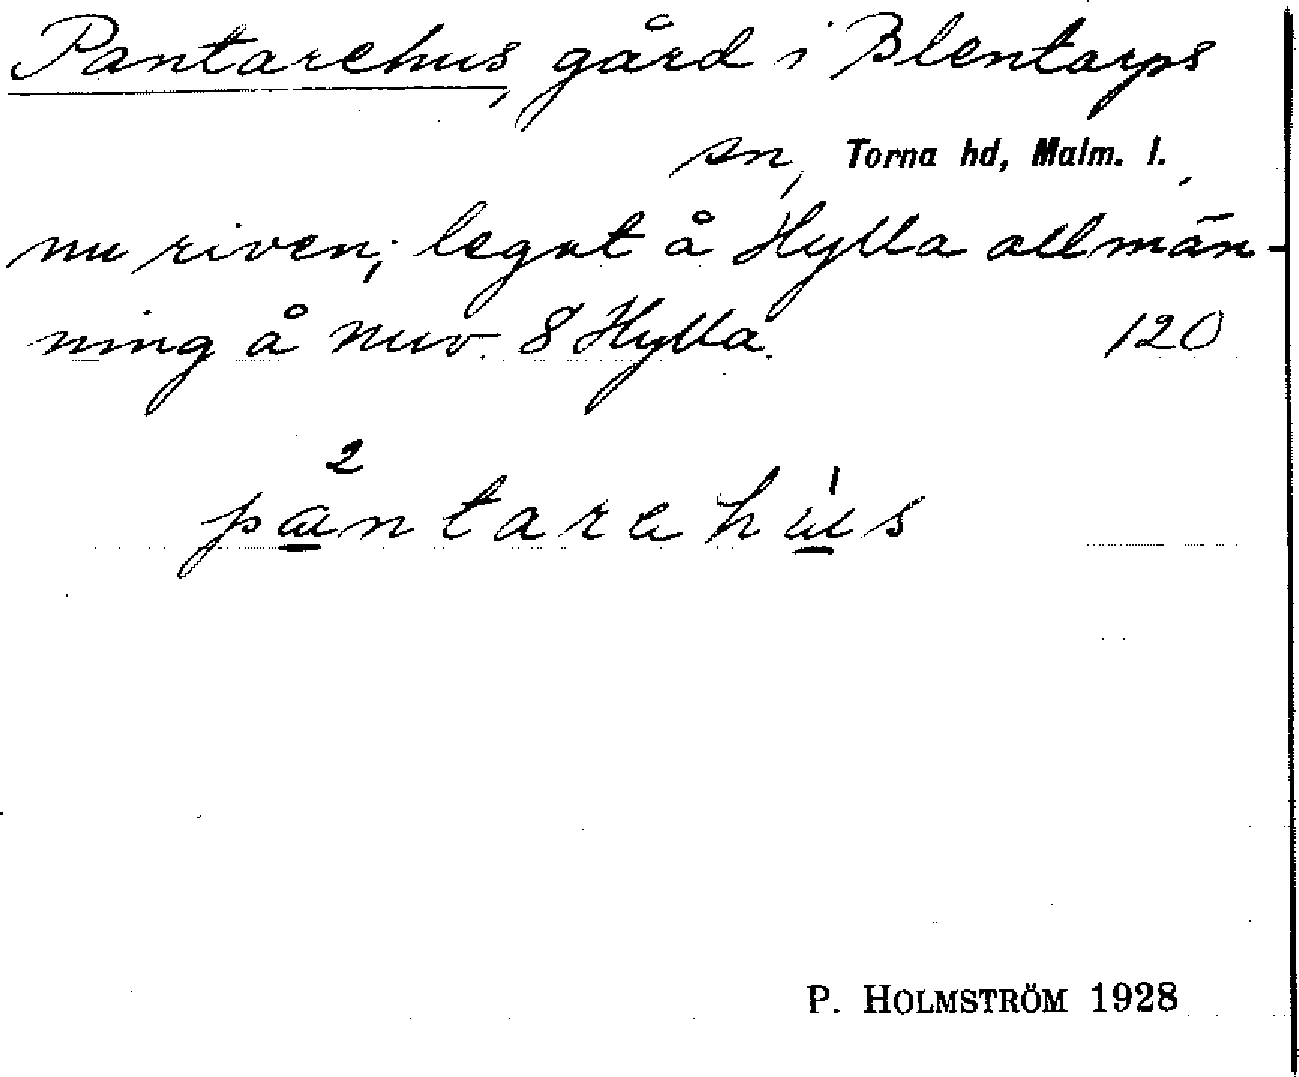 Pantarehus, gård i Blentarps
sn, Torna hd, Malm. l.
nu riven; legat å Hylla allmän-
ning å nuv. 8 Hylla. 120
2 1
pantarehus
P. HOLMSTRÖM 1928